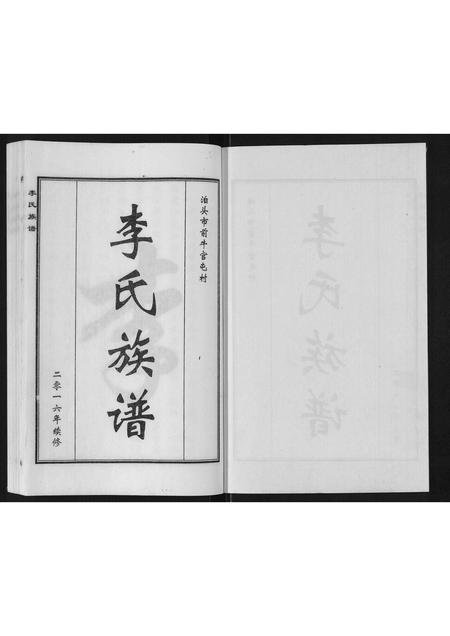 泊头市前牛官屯村
李氏族谱
二零一六年续修
李氏族谱